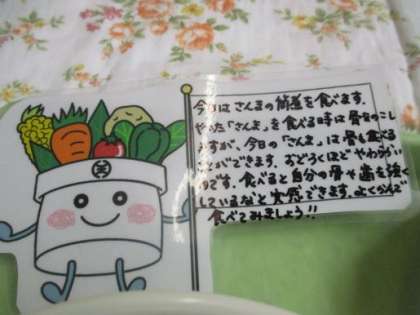 今日はさんまの筒煮を食べます。
やいた「さんま」を食べる時は骨をのこし
ますが、今日の「さんま」は骨も食べる
ことができます。おどろくほどやわらかい
のです。食べると自分の骨や歯を強く
しているなと実感できます。よくかんで
食べてみましょう!!